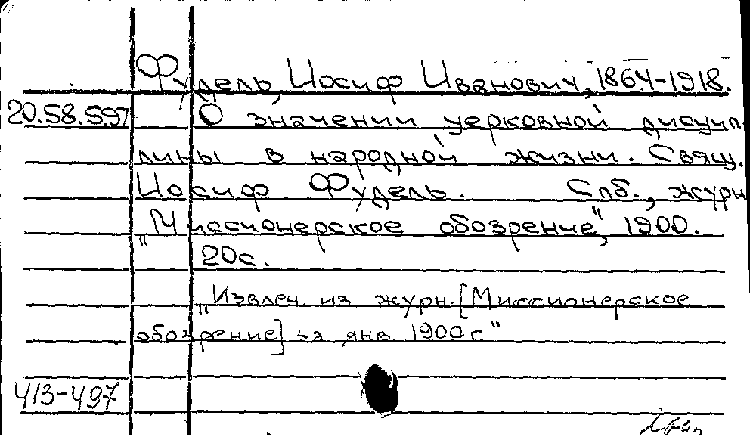 Фудель, Иосиф Иванович, 1864-1918.
20.58.597 О значении церковной дисцип-
лины в народной жизни. Свящ.
Иосиф Фудель. Спб., журн.
„Миссионерское обозрение", 1900.
20с.
„Извлеч. из журн. [Миссионерское
обозрение] за янв. 1900 г"
413-497